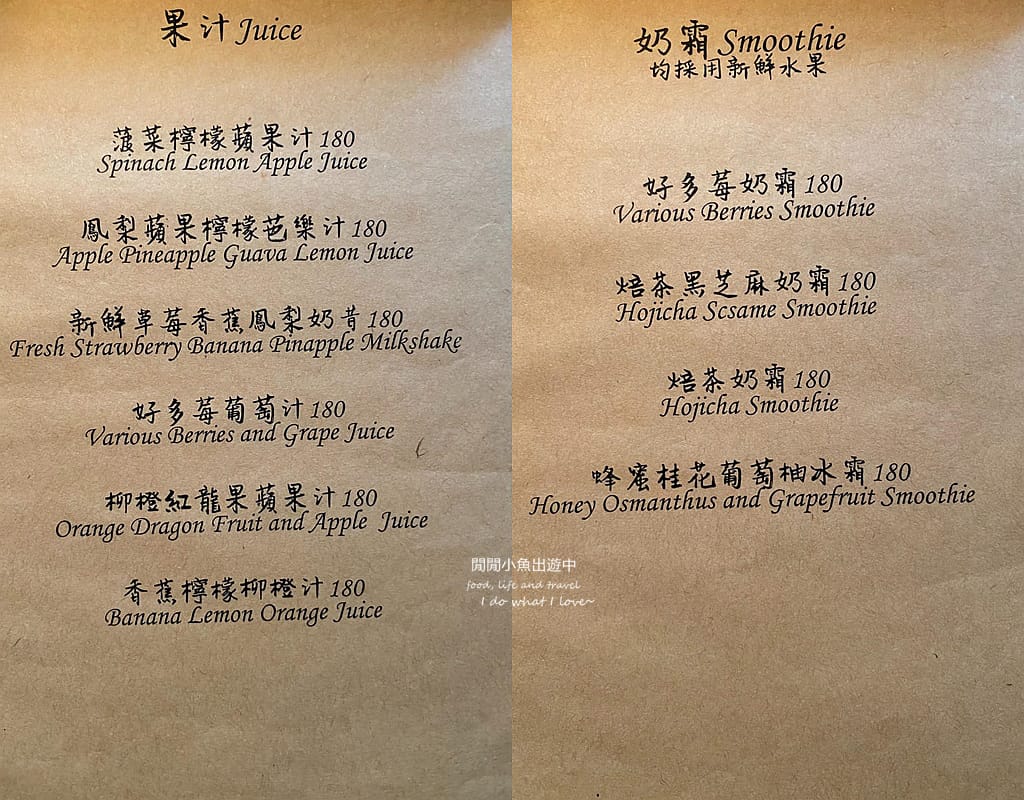 果汁 Juice
菠菜檸檬蘋果汁 180
Spinach Lemon Apple Juice
鳳梨蘋果檸檬芭樂汁 180
Apple Pineapple Guava Lemon Juice
新鮮草莓香蕉鳳梨奶昔 180
Fresh Strawberry Banana Pinapple Milkshake
好多莓葡萄汁 180
Various Berries and Grape Juice
柳橙紅龍果蘋果汁 180
Orange Dragon Fruit and Apple Juice
香蕉檸檬柳橙汁 180
Banana Lemon Orange Juice
奶霜 Smoothie
均採用新鮮水果
好多莓奶霜 180
Various Berries Smoothie
焙茶黑芝麻奶霜 180
Hojicha Scsame Smoothie
焙茶奶霜 180
Hojicha Smoothie
蜂蜜桂花葡萄柚冰霜 180
Honey Osmanthus and Grapefruit Smoothie
閒閒小魚出遊中
food, life and travel
I do what I love~